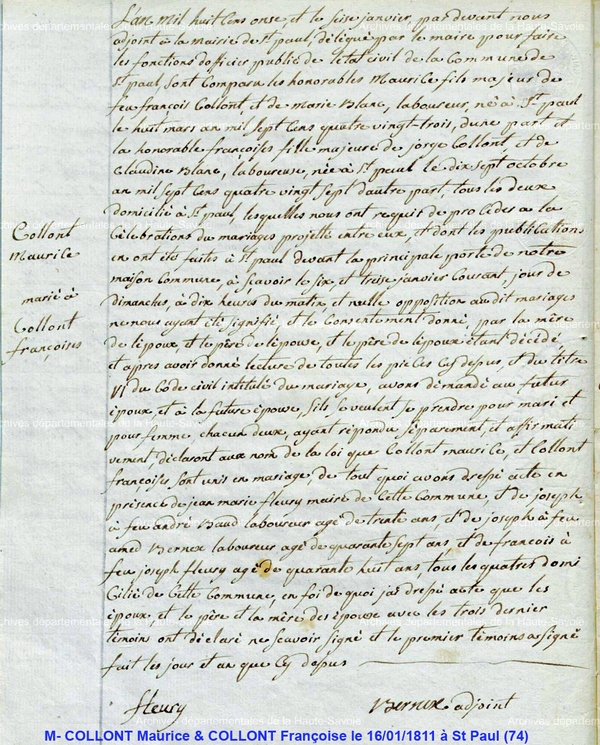 L'an mil huit cens onse et le seise janvier, par devant nous
adjoint à la mairie de St paul, délégué par le maire pour faire
les fonctions d'officier public de l'etat civil de la Commune de
St paul Sont Comparu les honorables Maurice fils majeur de
feu françois Collont, et de Marie Blanc, laboureur, né à St paul
le huit mars an mil sept Cens quatre vingt-trois, dune part et
la honorable françoises fille majeure de jorge Collont, et de
Claudine Blanc, laboureuse, née à St paul le dix sept octobre
an mil sept Cens quatre vingt sept dautre part, tous les deux
domicilié à St paul, lesquelles nous ont requir de proceder a la
Célébrations du mariages projetté entre eux, et dont les publications
en ont étés faites à St paul devant la principale porte de notre
maison Commune, à Scavoir le six et treise janvier Courant, jour de
dimanches, à dix heures du matin, et nulle opposition audit mariages
ne nous ayant été signifié, et le Consentement donné, par la mère
de l'époux, et le père de l'épouse, et le père de l'époux étant décédé,
et apres avoir donné lecture de toutes les pieces Cy depus, et du titre
VI du Code civil intitulé du mariage, avons demandé au futur
époux, et à la future épouse, Sils Se veulent Se prendre pour mari et
pour femme, chacun deux, ayant répondu Séparement, et affirmati
vement, déclaront aux nom de la loi que Collont maurice, et Collont
françoises Sont unis en mariage, de tout quoi avons drepé acte en
présence de jean marie fleury maire de Cette Commune, et de joseph
à feu andré Baud laboureur agé de trente ans, et de joseph à feu
amed Bernex laboureur agé de quarante Sept ans et de francois à
feu joseph fleury agé de quarante huit ans tous les quatres domi
Cilié de Cette Commune, en foi de quoi jai drepé acte que les
époux et le père et la mère des épouse avec les trois dernier
témoin ont déclaré ne Scavoir Signé et le premier témoins a signé
fait les jour et an que Cy depus
fleury Bernex adjoint
Collont
Maurice
marié à
Collont
françoises
Archives départementales de la Haute-Savoie
M- COLLONT Maurice & COLLONT Françoise le 16/01/1811 à St Paul (74)